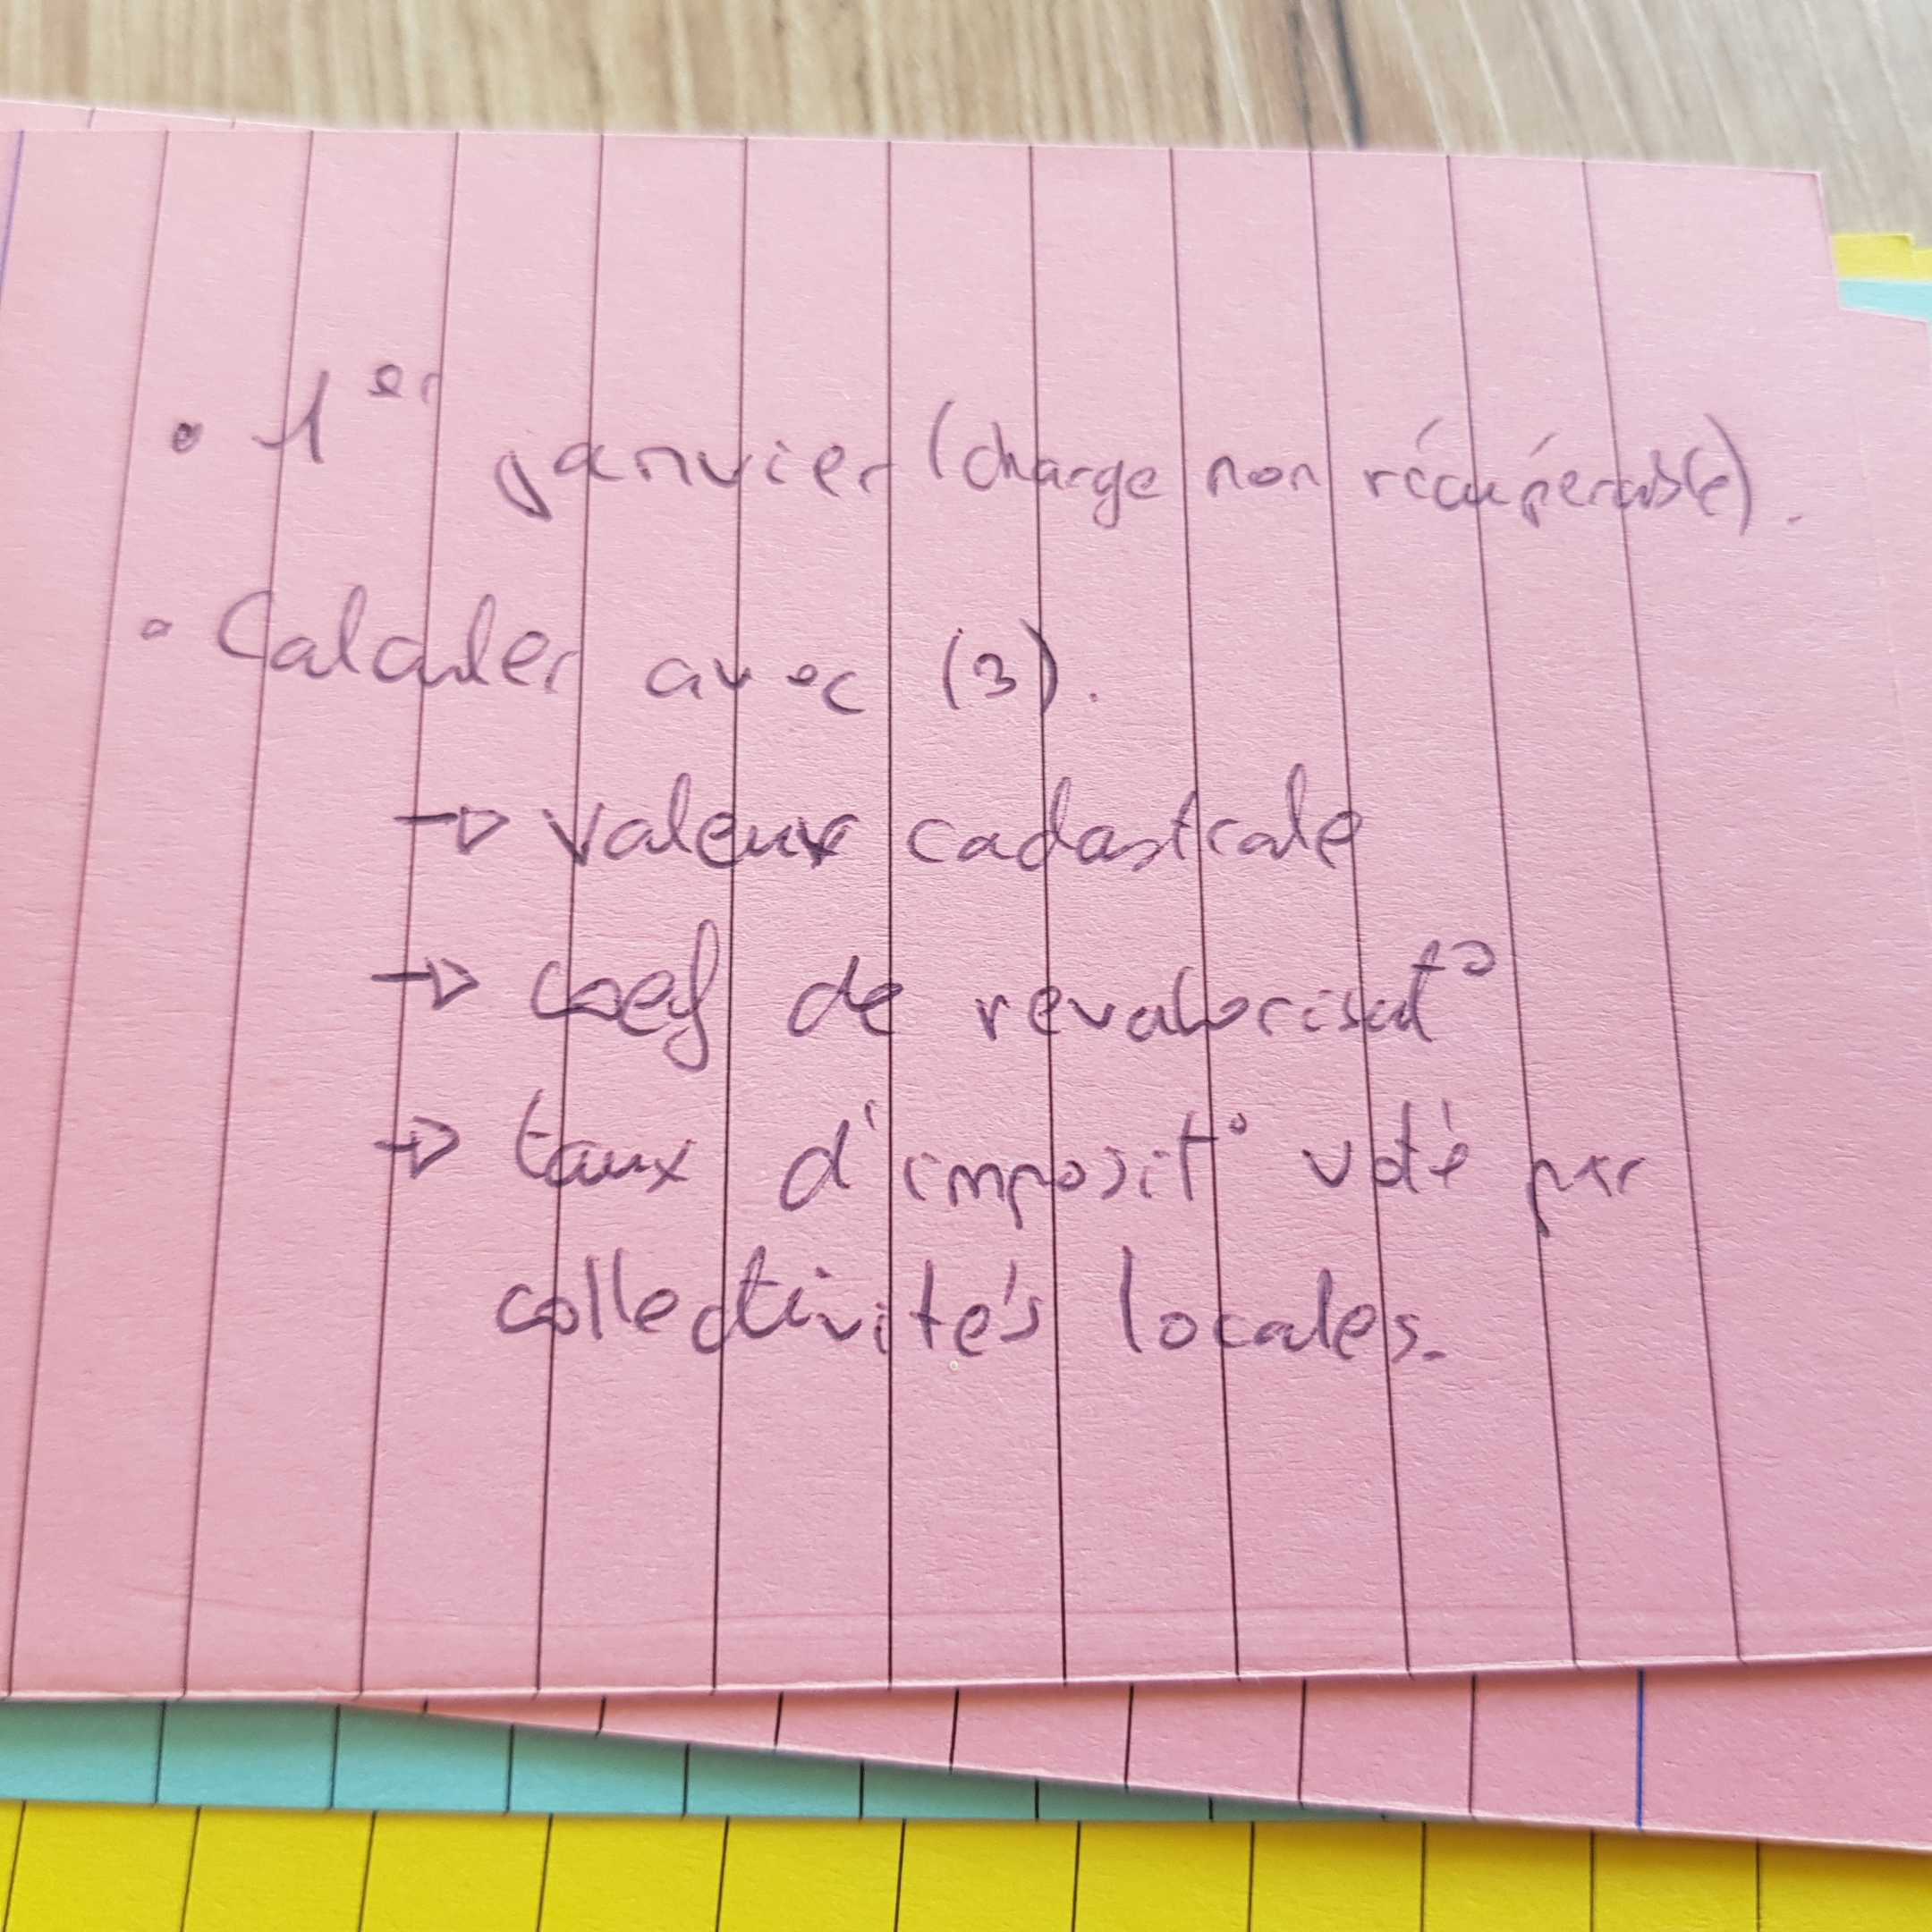 • 1er janvier (charge non récupérable).
• Calculer avec (3).
→ valeur cadastrale
→ coef de revalorisat°
→ taux d'imposit° voté par
collectivités locales.